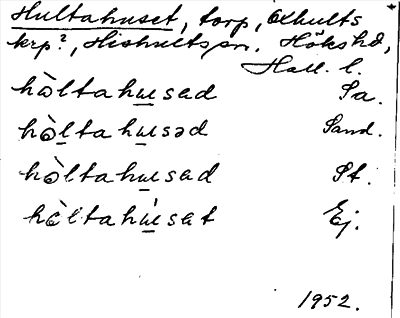 Hultahuset, torp, Älhults
krp?, Hishults sn. Höks hd,
Hall. l.
hòltahu̲sad Sa.
hò̲ltahu̲səd Sand.
hò̲ltahu̲sad St.
hòltahú̲sat Ej.
1952.